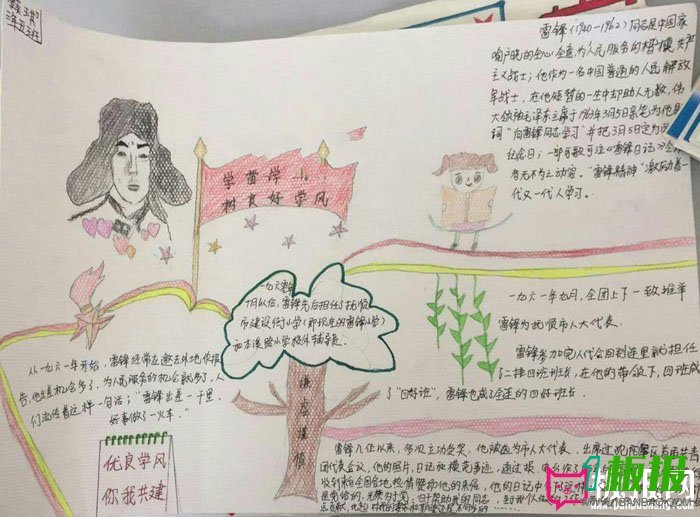 雷锋(1940-1962)同志是中国家
喻户晓的全心全意为人民服务的楷模,共产
主义战士;他作为一名中国普通的人民解放
军战士,在他短暂的一生中却助人无数,伟
大领袖毛泽东主席于1963年3月5日亲笔为他题
词“向雷锋同志学习”并把3月5日定为
纪念日;一部可歌可泣《雷锋日记》
者无不为之动容。“雷锋精神”激励着一
代又一代人学习。
学雷锋
树良好学风
一九六
月以后,雷锋先后担任了抚顺
市建设街小学(即现在的雷锋小学)
和本溪路小学校外辅导员。
一九六一年九月,全团上下一致推举
雷锋为抚顺市人大代表。
雷锋参加完人代会回到连里就担任
了二排四班班长,在他的带领下,四班成
了“四好班”,雷锋也成了全连的四好班长。
从一九六一年开始,雷锋经常应邀去外地作报
告,他出差机会多了,为人民服务的机会就多了,人
们流传着这样一句话:“雷锋出差一千里,
好事做了一火车。”
优良学风
你我共建
谦虚谨慎
雷锋入伍以来,多次立功受奖,他被选为市人大代表,出席过沈阳军区首届共青
团代表会议,他的照片、日记和模范事迹,通过报
收到和全国各地热情赞扬他的来信,他的日记中
板报